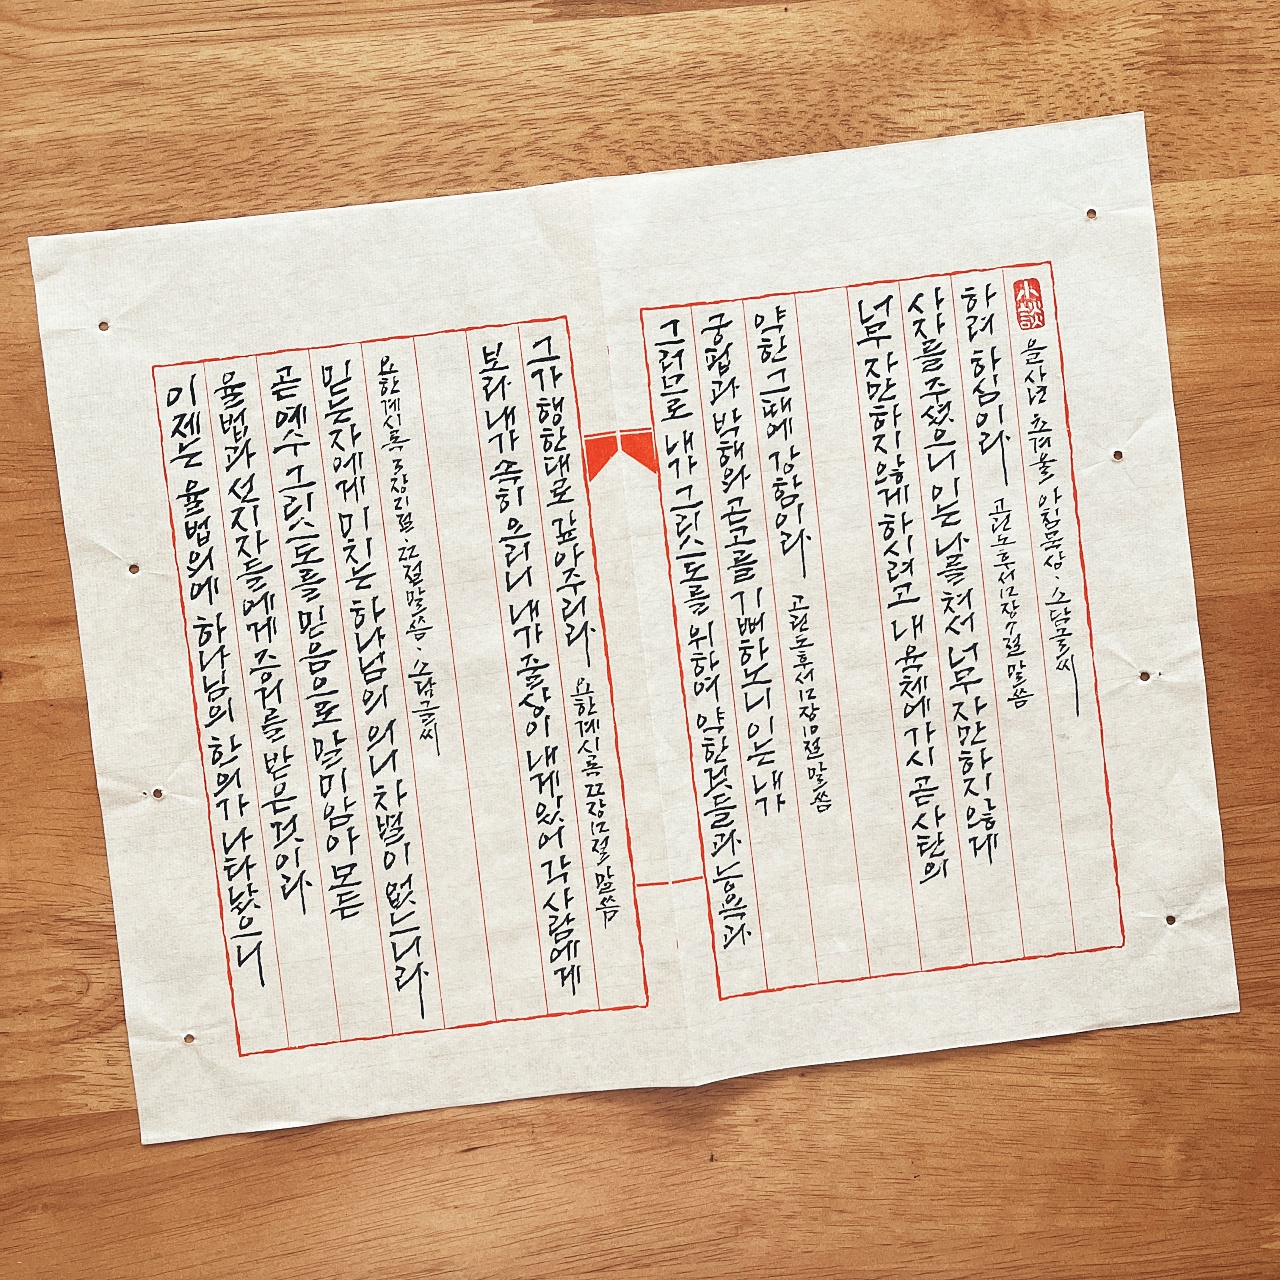 이제는 율법외에 하나님의 한 의가 나타났으니
율법과 선지자들에게 증거를 받은것이라
곧 예수 그리스도를 믿음으로 말미암아 모든
믿는자에게 미치는 하나님의 의니 차별이 없느니라
요한계시록 3장21절.22절말씀. 소담글씨
보라 내가 속히 오리니 내가 줄상이 내게 있어 각사람에게
그가 행한대로 갚아주리라 요한계시록 22장12절 말씀
그러므로 내가 그리스도를 위하여 약한것들과 능욕과
궁핍과 박해와 곤고를 기뻐하노니 이는 내가
약한 그때에 강함이라 고린도후서12장10절 말씀
너무 자만하지 않게 하시려고 내 육체에 가시 곧 사탄의
사자를 주셨으니 이는 나를 쳐서 너무 자만하지 않게
하려 하심이라 고린도후서12장7절 말씀
小談
을사년 초겨울 아침묵상. 소담글씨